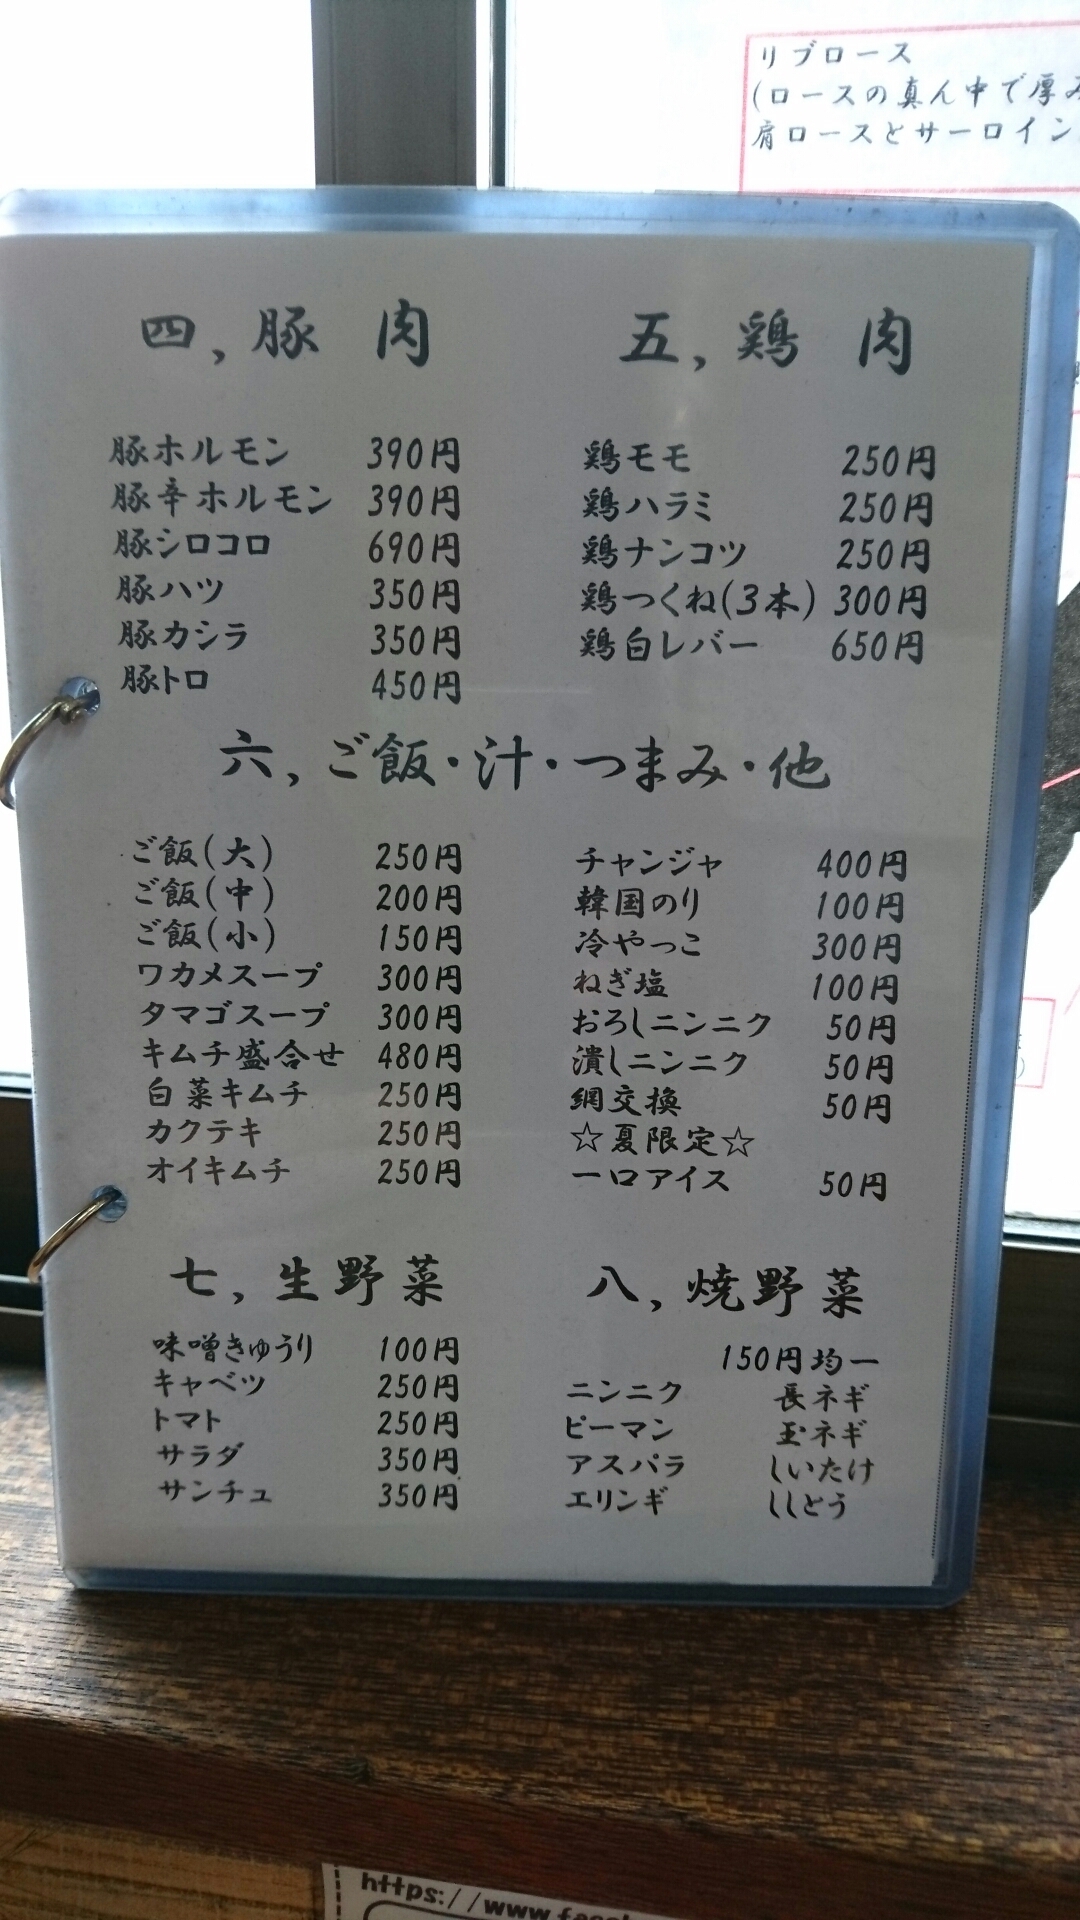 リブロース
(ロースの真ん中で厚み
肩ロースとサーロイン
四,豚 肉
豚ホルモン 390円
豚辛ホルモン 390円
豚シロコロ 690円
豚ハツ 350円
豚カシラ 350円
豚トロ 450円
五,鶏 肉
鶏モモ 250円
鶏ハラミ 250円
鶏ナンコツ 250円
鶏つくね(3本) 300円
鶏白レバー 650円
六,ご飯・汁・つまみ・他
ご飯(大) 250円
ご飯(中) 200円
ご飯(小) 150円
ワカメスープ 300円
タマゴスープ 300円
キムチ盛合せ 480円
白菜キムチ 250円
カクテキ 250円
オイキムチ 250円
チャンジャ 400円
韓国のり 100円
冷やっこ 300円
ねぎ塩 100円
おろしニンニク 50円
潰しニンニク 50円
網交換 50円
☆夏限定☆
一口アイス 50円
七,生野菜
味噌きゅうり 100円
キャベツ 250円
トマト 250円
サラダ 350円
サンチュ 350円
八,焼野菜
150円均一
ニンニク 長ネギ
ピーマン 玉ネギ
アスパラ しいたけ
エリンギ ししとう
https://www.faceb